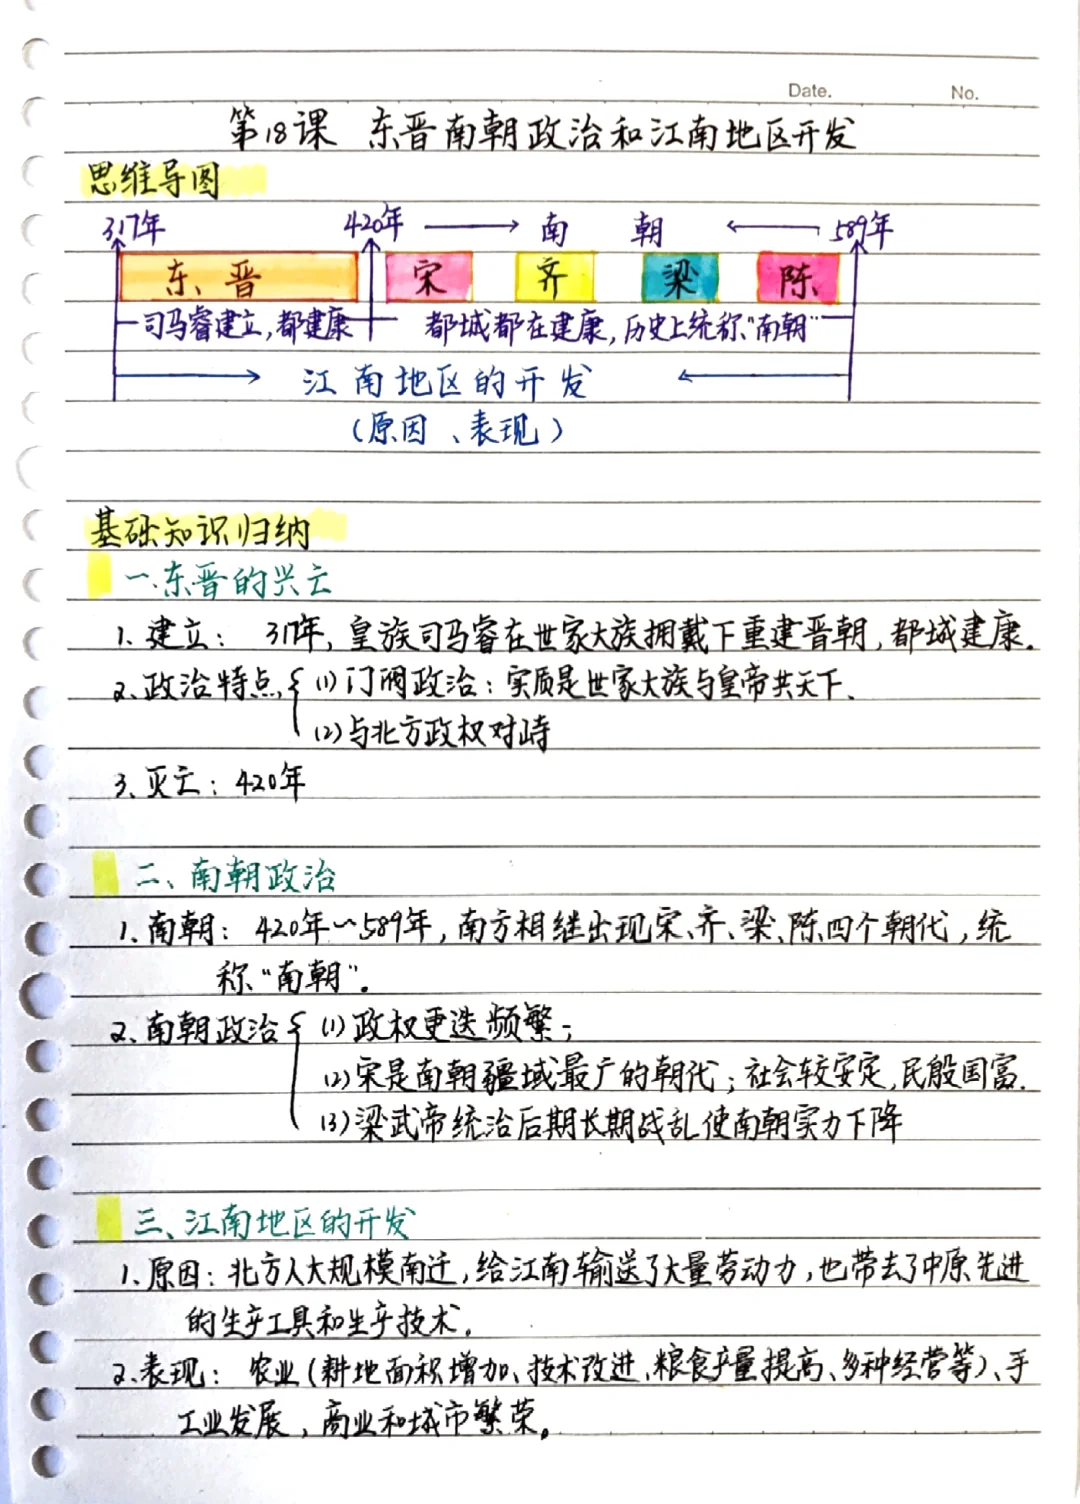 Date. No.
第18课 东晋南朝政治和江南地区开发
思维导图
317年 420年 南 朝 589年
东晋 宋 齐 梁 陈
司马睿建立,都建康 都城都在建康,历史上统称“南朝”
江南地区的开发
(原因、表现)
基础知识归纳
一.东晋的兴亡
1.建立: 317年,皇族司马睿在世家大族拥戴下重建晋朝,都城建康.
2.政治特点 (1)门阀政治:实质是世家大族与皇帝共天下.
(2)与北方政权对峙
3.灭亡:420年
二、南朝政治
1.南朝: 420年~589年,南方相继出现宋、齐、梁、陈四个朝代,统
称“南朝”。
2.南朝政治 (1)政权更迭频繁;
(2)宋是南朝疆域最广的朝代;社会较安定,民殷国富.
(3)梁武帝统治后期长期战乱使南朝实力下降
三、江南地区的开发
1.原因:北方人大规模南迁,给江南输送了大量劳动力,也带去了中原先进
的生产工具和生产技术.
2.表现: 农业(耕地面积增加、技术改进、粮食产量提高、多种经营等)、手
工业发展,商业和城市繁荣。